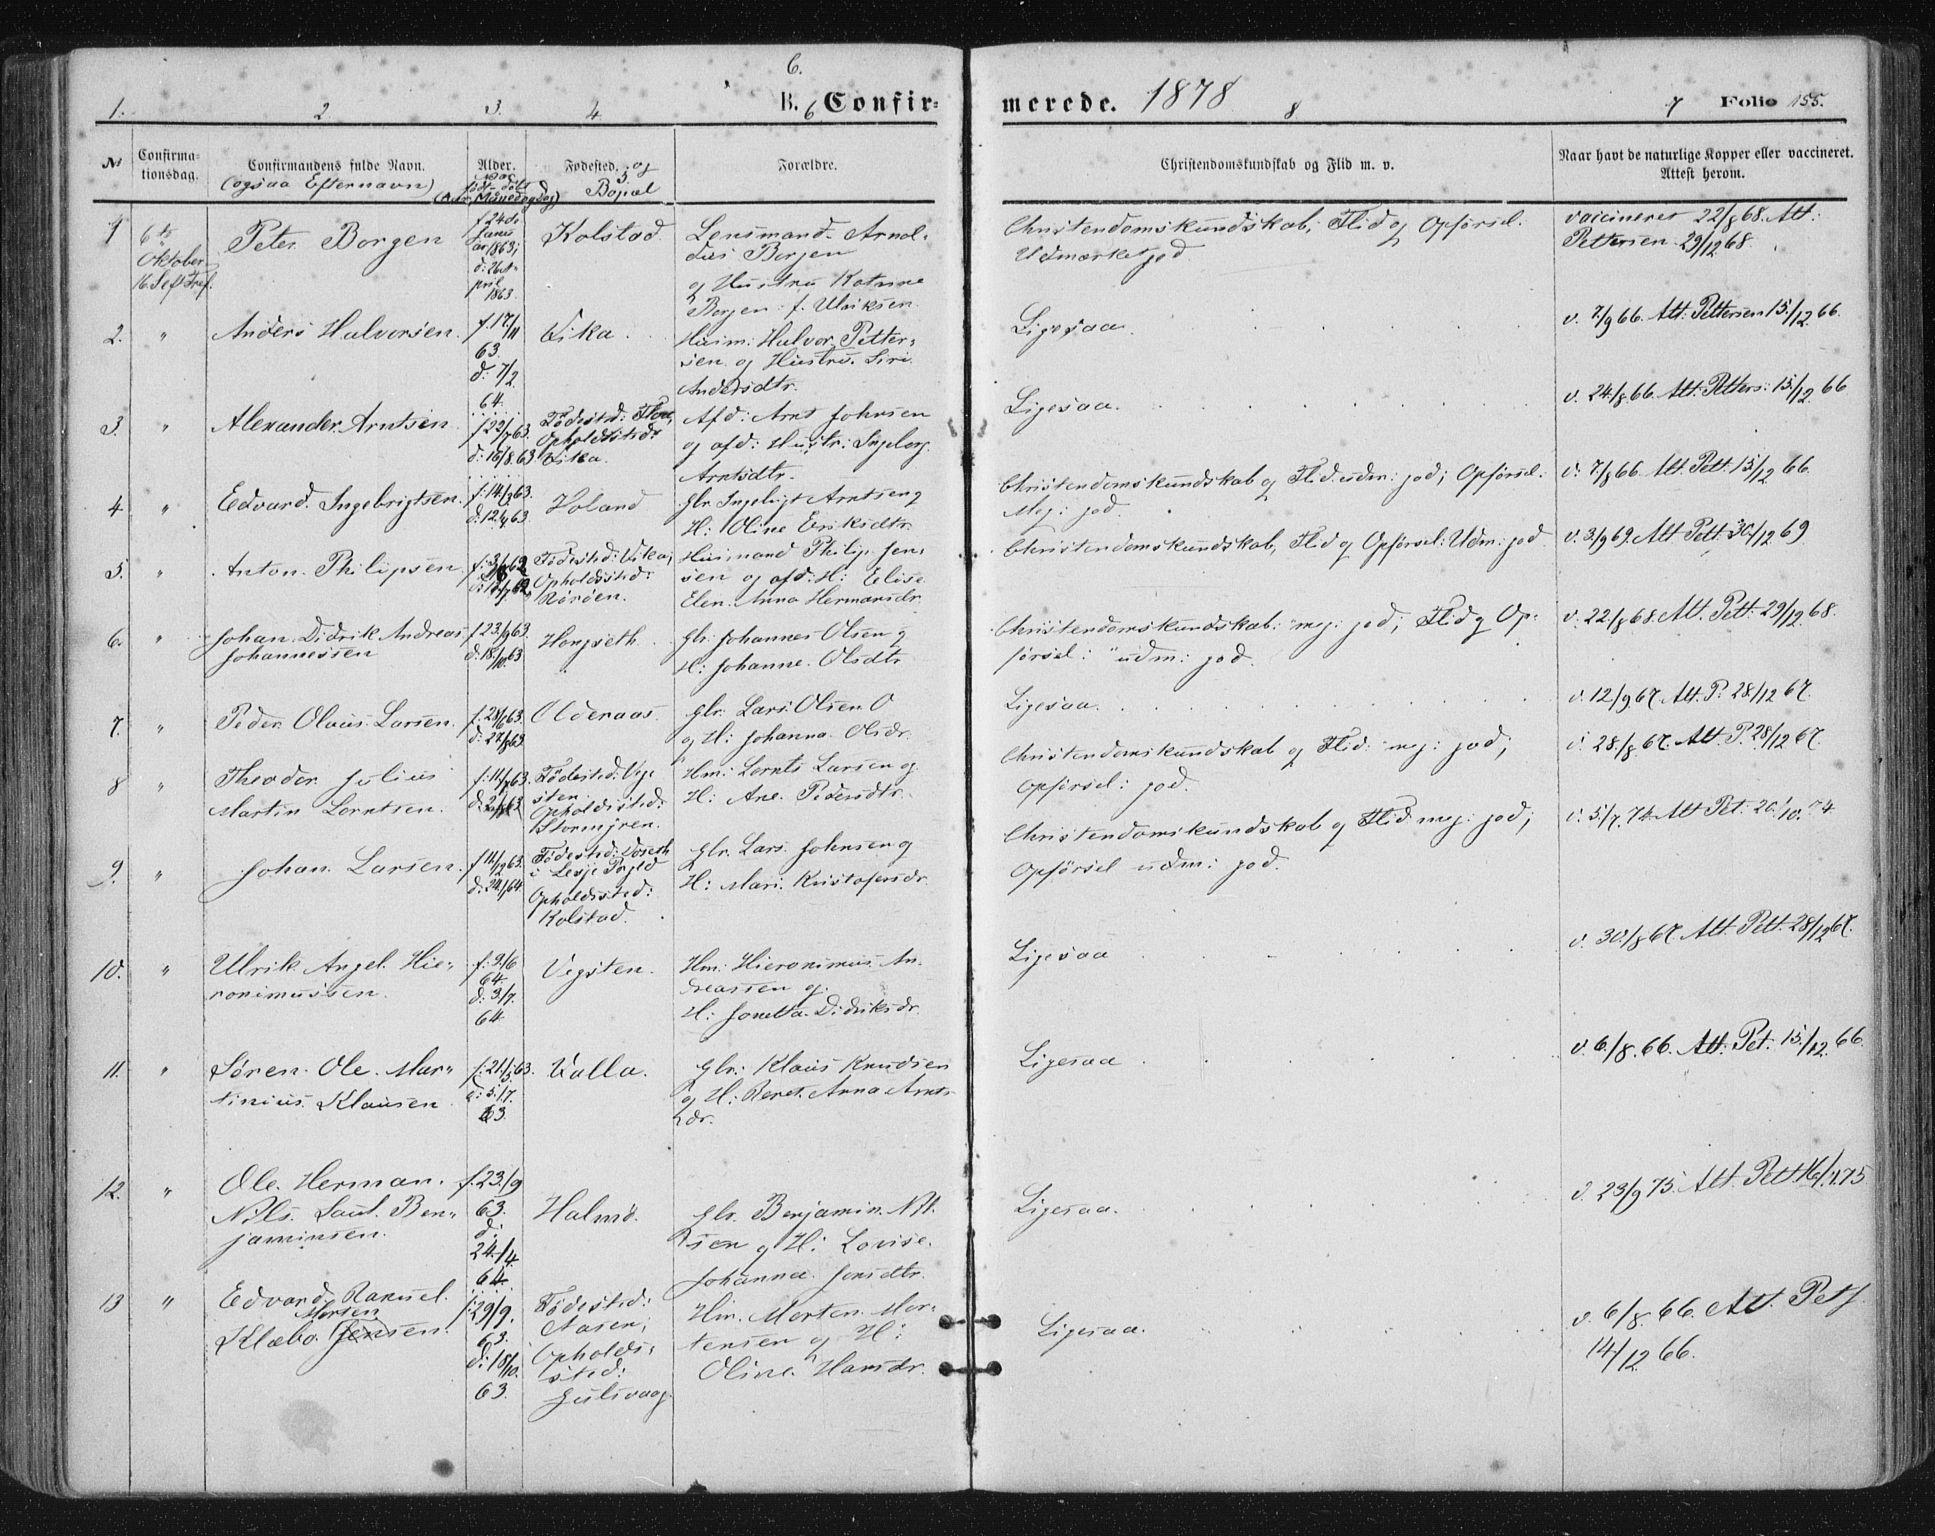 6.
1. 2 3. 4 B. 6 Confirmerede. 1878 8 7 Folio 155.
№ Confirmationsdag. Confirmandens fulde Navn. (ogsaa Efternavn) Alder. Naar født - døbt (Aar, Maaned og dag) Fødested, og 5 Bopæl Forældre. Christendomskundskab og Flid m. v. Naar havt de naturlige Kopper eller vaccineret. Attest herom.
1 6te Oktober Peter Borgen f 24de Januar 1863; d: 26 April 1863. Kolstad Lensmand Arnoldus Borgen og Hustru Katrine Borgen f. Ulriksen Christendomskundskab, Flid og Opførsel: Udmærket god vaccineret 22/8 68. Att: Pettersen 29/12 68.
2. " Anders Halvorsen. f. 17/11 63. d: 7/2 64. Vika. Husm: Halvor Pettersen og Hustru Siri Andersdtr. Ligesaa. v. 7/9 66. Att: Pettersen 15/12 66.
3. " Alexander Arntsen f 22/7 63. d: 16/8 63 Fødested: Opholdssted: Vika. Afd: Arnt Johnsen og afd: Hustr: Ingeborg Arntsdtr. Ligesaa. v. 24/8 66. Att. Petters: 15/12 66
4 " Edvard Ingebrigtsen. f: 14/3 63. d: 12/4 63 Holand Gbr Ingebrigt Arntsen og H: Oline Eriksdtr. Christendomskundskab og Flid: udm: god; Opførsel: Meg: god. v. 7/8 66. Att. Pett. 15/12 66.
5. " Anton Philipsen Fødested: Vika; Opholdssted: Rørøen. Husmand Philip Jensen og afd: H: Elise Elen Anna Hermansdr. Christendomskundskab, Flid og Opførsel: Udm: god v. 3/9 69. Att Pett. 30/12 69
6. " Johan Didrik Andreas Johannessen f 23/9 63. d: 18/10 63 Hongseth Gbr: Johannes Olsen og H: Johanne Olsdtr Christendomskundskab: meg: god; Flid og Opførsel: udm: god. v. 22/8 68. Att. Pett: 29/12 68.
7. " Peder Olaus Larsen. f. 28/6 63. d: 27/8 63 Olderaas. Gbr. Lars Olsen O og H: Johanna Olsdr. Ligesaa. v. 12/9 67. Att. P. 28/12 67.
8 " Theodor Julius Martin Lorntsen. Fødested: Vegsten. Opholdssted: Stormyren. Hm: Lornts Larsen og H: Ane Pedersdtr. Christendomskundskab og Flid: meg: god; Opførsel: god. v. 28/8 67. Att. P. 28/12 67.
9. " Johan Larsen. f 11/12 63. d: 24/1 64 Fødested: i Lesje Prgld Opholdssted: Kolstad. Gbr. Lars Johnsen og H: Mari Kristofersdr. Christendomskundskab og Flid meg: god; Opførsel udm: god. v. 5/7. 74 Att Pet. 20/10 74
10. " Ulrik Angel Hieronimussen. f: 9/6 64. d: 3/7. 64 Vegsten. Hm: Hieronimus Andreassen og H: Jonetta Didriksdr. Ligesaa v. 30/8 67. Att. Pett. 28/12 67.
11. " Søren Ole Martinius Klausen f: 21/5 63. d: 5/7. 63. Valla. Gbr: Klaus Knudsen og H: Beret Anna Arntsdr. Ligesaa v. 6/8. 66. Att: Pet. 15/12 66.
12. " Ole Herman Nils Laut. Benjaminsen. f. 23/9 63. d: 24/4 64. Halmø. Gbr. Benjamin Nilsen og H: Lovise Johanna Jensdtr. Ligesaa. v. 23/9 75. Att. Pett
13 " Edvard Ranuel Morten Klæbo Jensen. f. 29/9. 63. d: 18/10. 63. Fødested: Aasen; Opholdssted: Gulsvaag. Hm. Morten Mortensen og H: Oline Hansdr. Ligesaa. v. 6/8. 66. Att. Pett 14/12 66.